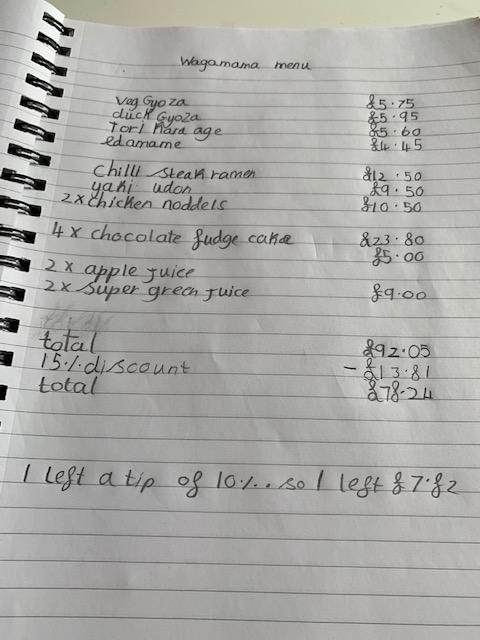 Wagamama menu
Veg Gyoza £5.75
duck Gyoza £5.95
Tori Kara age £5.60
edamame £4.45
Chilli steak ramen £12.50
yaki udon £9.50
2x chicken noddels £10.50
4x chocolate fudge cake £23.80
£5.00
2x apple juice
2x super green juice £9.00
total £92.05
15% discount - £13.81
total £78.24
I left a tip of 10%.. so I left £7.82